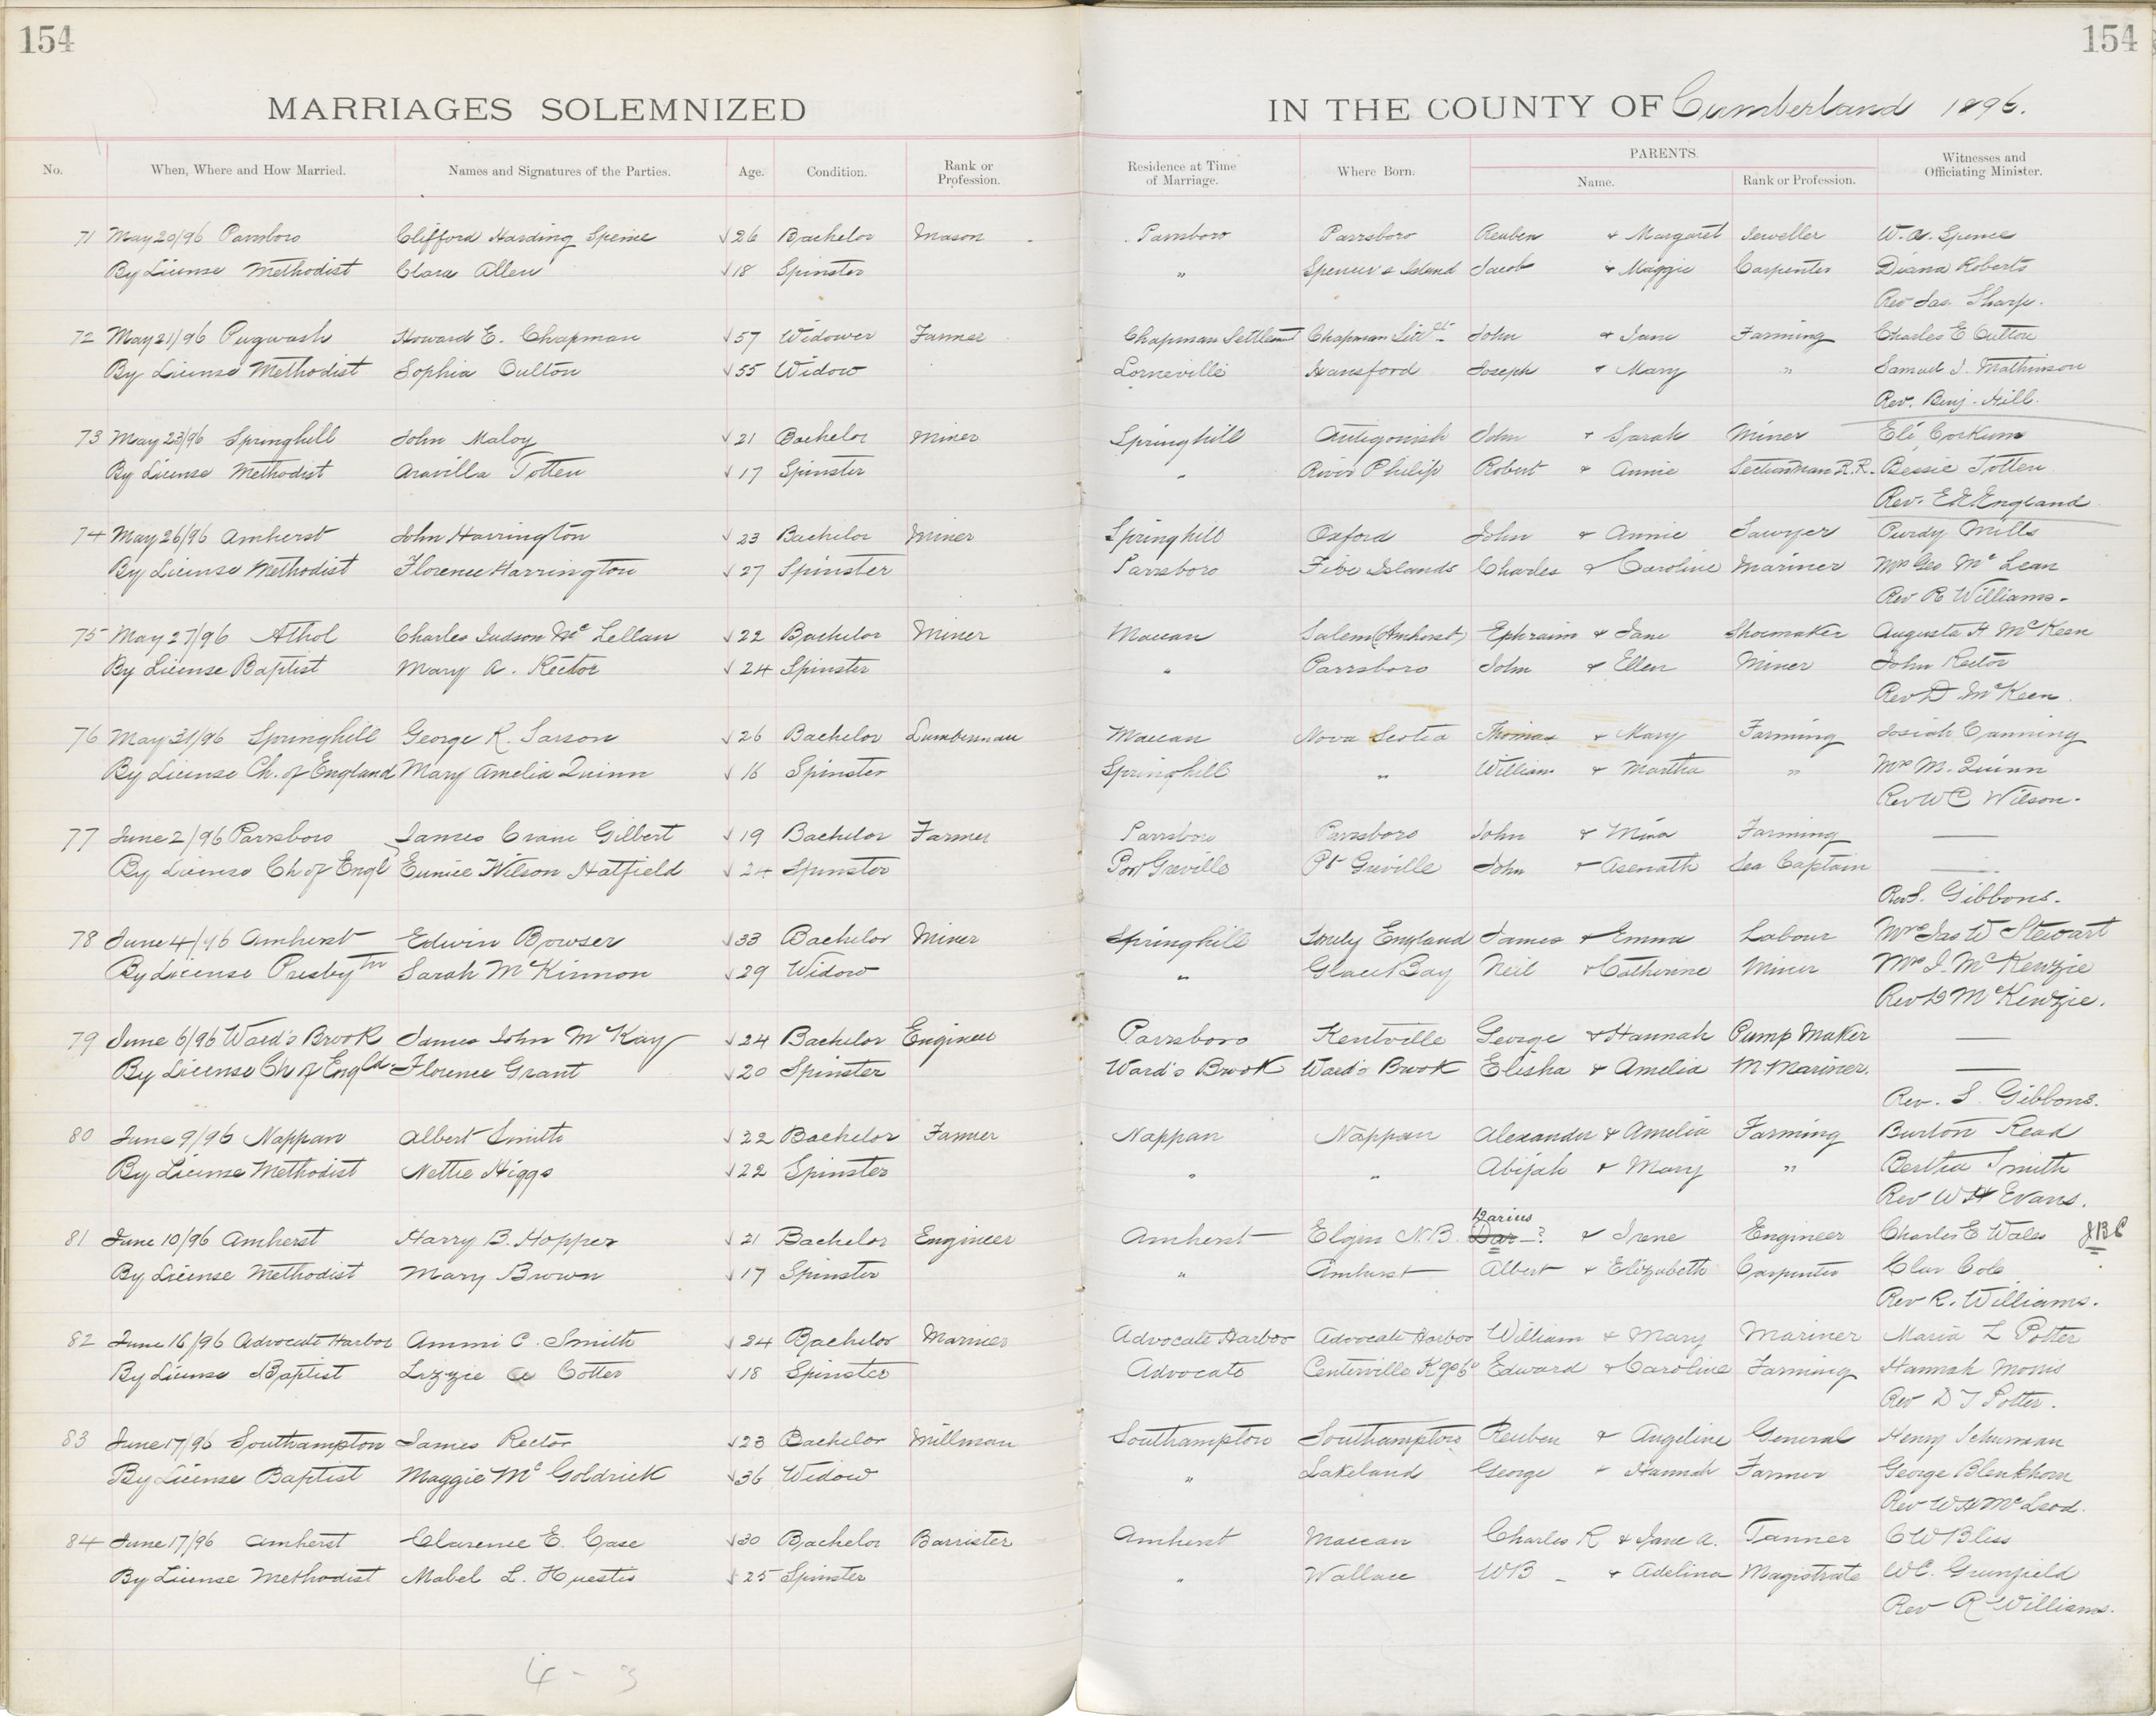 154
154
MARRIAGES SOLEMNIZED
IN THE COUNTY OF Cumberland 1896.
No. When, Where and How Married. Names and Signatures of the Parties. Age. Condition. Rank or Profession. Residence at Time of Marriage. Where Born. PARENTS. Name. Rank or Profession. Witnesses and Officiating Minister.
71 May 20/96 Parrsboro Clifford Harding Spence √26 Bachelor Mason Parrsboro Parrsboro Reuben & Margaret Jeweller W. A. Spence
By License Methodist Clara Allen √18 Spinster " Spencer's Island Jacob & Maggie Carpenter Diana Roberts
Rev Jas. Sharp.
72 May 21/96 Pugwash Howard E. Chapman √57 Widower Farmer Chapman Settlement Chapman Sett John & Jane Farming Charles E Oulton
By License Methodist Sophia Oulton √55 Widow Lorneville Hansford Joseph & Mary " Samuel J. Mathinson
Rev. Benj. Hill.
73 May 23/96 Springhill John Maloy √21 Bachelor Miner Springhill Antigonish John & Sarah Miner Eli Corkum
By License Methodist Aravilla Totten √17 Spinster " River Philip Robert & Annie Sectionman R.R. Bessie Totten
Rev. E E England
74 May 26/96 Amherst John Harrington √23 Bachelor Miner Springhill Oxford John & Annie Sawyer Purdy Mills
By License Methodist Florence Harrington √27 Spinster Parrsboro Five Islands Charles & Caroline Mariner Mrs Geo McLean
Rev R Williams.
75 May 27/96 Athol Charles Judson McLellan √22 Bachelor Miner Maccan Salem (Amherst) Ephraim & Jane Shoemaker Augusta H McKeen
By License Baptist Mary A. Rector √24 Spinster " Parrsboro John & Ellen Miner John Rector
Rev D McKeen.
76 May 31/96 Springhill George R. Sarson √26 Bachelor Lumberman Maccan Nova Scotia Thomas & Mary Farming Josiah Canning
By License Ch. of England Mary Amelia Quinn √16 Spinster Springhill " William & Martha " Mrs M. Quinn
Rev W C Wilson.
77 June 2/96 Parrsboro James Crane Gilbert √19 Bachelor Farmer Parrsboro Parrsboro John & Mina Farming —
By License Ch of Engl Eunice Wilson Hatfield √24 Spinster Port Greville Pt Greville John & Asenath Sea Captain —
Rev S. Gibbons.
78 June 4/96 Amherst Edwin Bowser √33 Bachelor Miner Springhill England James & Emma Labour Mrs Jas W Stewart
By License Presbytn Sarah McKinnon √29 Widow " Glace Bay Neil & Catherine Miner Mrs J. McKenzie
Rev D McKenzie.
79 June 6/96 Ward's Brook James John McKay √24 Bachelor Engineer Parrsboro Kentville George & Hannah Pump Maker —
By License Ch of Engld Florence Grant √20 Spinster Ward's Brook Ward's Brook Elisha & Amelia M. Mariner. —
Rev. S. Gibbons.
80 June 9/96 Nappan Albert Smith √22 Bachelor Farmer Nappan Nappan Alexander & Amelia Farming Burton Read
By License Methodist Nettie Higgs √22 Spinster " " Abijah & Mary " Bertha Smith
Rev W H Evans.
Darius
81 June 10/96 Amherst Harry B. Hopper √21 Bachelor Engineer Amherst Elgin N.B. Dar—? & Irene Engineer Charles E Wales JBC
By License Methodist Mary Brown √17 Spinster " Amherst Albert & Elizabeth Carpenter Cole
Rev R. Williams.
82 June 16/96 Advocate Harbor Ammi C. Smith √24 Bachelor Mariner Advocate Harbor Advocate Harbor William & Mary Mariner Maria L Potter
By License Baptist Lizzie A Cotter √18 Spinster Advocate Centerville Kgs Co Edward & Caroline Farming Hannah Morris
Rev D T Potter.
83 June 17/96 Southampton James Rector √23 Bachelor Millman Southampton Southampton Reuben & Angeline General Henry Schurman
By License Baptist Maggie McGoldrick √36 Widow " Lakeland George & Hannah Farmer George Blenkhorn
Rev W H McLeod.
84 June 17/96 Amherst Clarence E. Case √30 Bachelor Barrister Amherst Maccan Charles R & Jane A. Tanner C W Bliss
By License Methodist Mabel L. Huestis √25 Spinster " Wallace W B — & Adelina Magistrate W C. Grunfield
Rev R Williams.
4 - 3